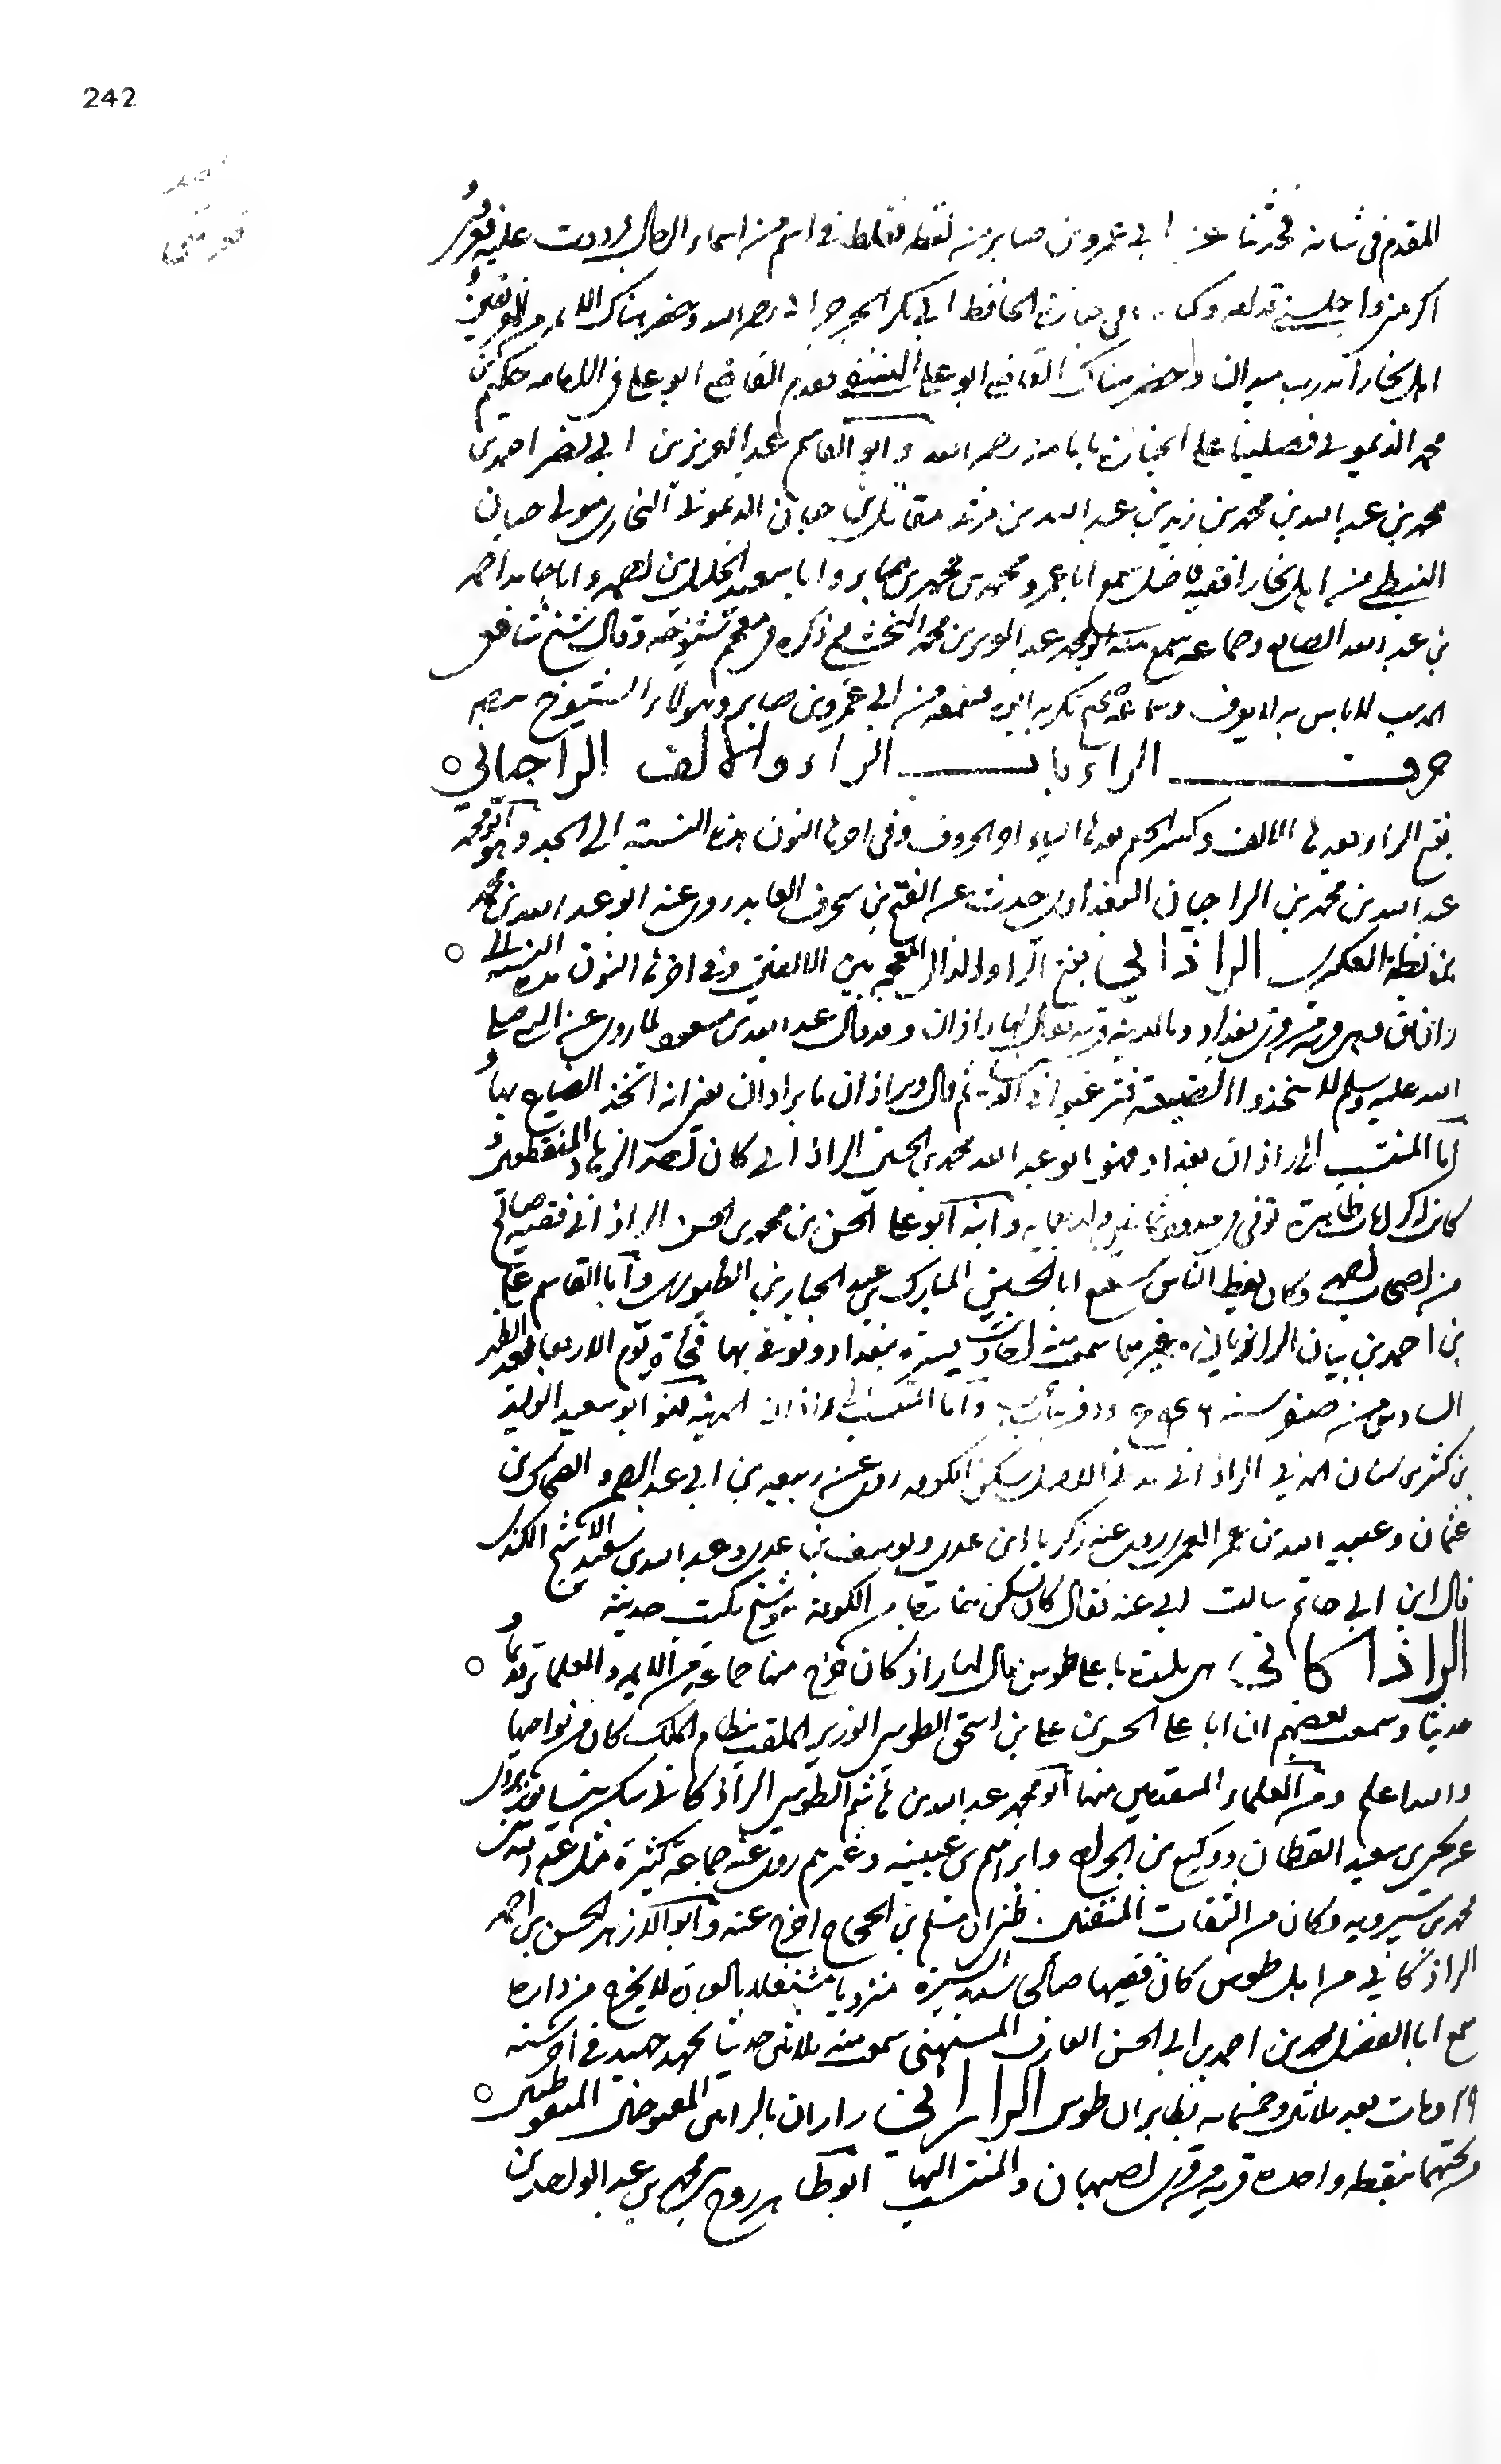 242
المقدم في شانه فحدثنا عن ابي عمرو بن صابر من لفظه فغلط في اسم من اسماء الرجال فرددت عليه
اكرمني واجلسني قدامه وكنا في جنازة الحافظ ابي بكر الجرجراني رحمه الله وحضر هناك الائمة من الفريقين
اهل بخارا بدرب ميدان وحضر هناك القاضي ابو علي النسفي فقدم القاضي ابو علي في الامامة حكيم بن
محمد الذيموني فصلينا على الجنازة بامامته رحمه الله وابو القاسم عبد العزيز بن ابي نصر احمد بن
محمد بن عبد الله بن محمد بن زيد بن عبد الله بن مرثد بن مقاتل بن حيان الذيموني البخاري مولى حيان
النبطي من اهل بخارا فقيه فاضل سمع ابا عمرو محمد بن محمد بن صابر وابا سعيد الخليل بن احمد وابا حامد احمد
بن عبد الله الصائغ وجماعة سمع منه ابو محمد عبد العزيز بن محمد النخشبي ذكره في معجم شيوخه وقال شيخ شافعي
المذهب لا باس به لا يعرف وسماعه صحيح بكر به ابوه فسمعه من ابي عمرو بن صابر وهؤلاء الشيوخ
حرف الراء باب الراء والالف الراجياني
بفتح الراء بعدها الالف وكسر الجيم بعدها الياء اخر الحروف وفي اخرها النون هذه النسبة الى الجد وهو ابو محمد
عبد الله بن محمد بن الراجيان البغدادي حدث عن الفتح بن شخرف العابد روى عنه ابو عبد الله بن محمد
بن بطة العكبري الراذاني بفتح الراء والذال المعجمة بين الالفين وفي اخرها النون هذه النسبة الى
راذان قرية من قرى بغداد وبالمدينة قرية يقال لها راذان وقد قال عبد الله بن مسعود لما روى عن النبي صلى
الله عليه وسلم لا تتخذوا الضيعة فترغبوا في الدنيا ثم قال وبراذان ما براذان يعني انه اتخذ الضياع بها
اما المنتسب الى راذان بغداد فهو ابو عبد الله محمد بن الحسن الراذاني كان احد الزهاد المنقطعين و
كانت له كرامات ظاهرة توفي في حدود ثمانين واربعمائة وابنه ابو علي الحسن بن محمد بن الحسن الراذاني فقيه صالح
من اصحاب احمد وكان يعظ الناس سمع ابا الحسين المبارك بن عبد الجبار بن الطيوري وابا القاسم علي
بن احمد بن بيان الرزاز وغيرهما سمعت منه احاديث يسيرة ببغداد وتوفي بها فجأة يوم الاربعاء بعد الظهر
السادس من صفر سنة ٥٤٦ ودفن وأما المنتسب الى راذان المدينة فهو ابو سعيد الوليد
بن كثير بن سنان المدني الراذاني مدني الاصل سكن الكوفة روى عن ربيعة بن ابي عبد الرحمن والضحاك بن
عثمان وعبيد الله بن عمر العمري روى عنه زكريا ابن عدي ويوسف بن عدي وعبد الله بن سعيد الاشج الكندي
قال ابن ابي حاتم سالت ابي عنه فقال كان يسكن الكوفة هو شيخ يكتب حديثه
الراذكاني هي بليدة باعلى طوس يقال لها راذكان خرج منها جماعة من الائمة والعلماء قديما و
حديثا وسمعت بعضهم ان ابا علي الحسن بن علي بن اسحق الطوسي الوزير الملقب بنظام الملك كان من نواحيها
والله اعلم ومن العلماء المتقدمين منها ابو محمد عبد الله بن هاشم الطوسي الراذكاني سكن نيسابور يروي
عن يحيى بن سعيد القطان ووكيع بن الجراح وابراهيم بن عيينه وغيرهم روى عنه جماعة كثيرة مثل عبد الله بن
محمد بن شيرويه وكان من الثقات المتقنين مسلم بن الحجاج اخرج عنه وابو الازهر الحسن بن احمد
الراذكاني من اهل طوس كان فقيها صالحا سديد السيرة منزويا مشتغلا بالعبادة لا يخرج من داره
سمع ابا الفضل محمد بن احمد بن ابي الحسن العارف الميهني سمعت منه ثلاثة حديثا بجهد جهيد في اخر سنة
٥٢٩ ومات بعد ثلاثين وخمسمائة بطابران طوس الراراني راران بالرائين المفتوحتين المنقوطتين
من تحتهما بنقطة واحدة قرية من قرى اصبهان والمنتسب اليها ابو طاهر روح بن محمد بن عبد الواحد بن